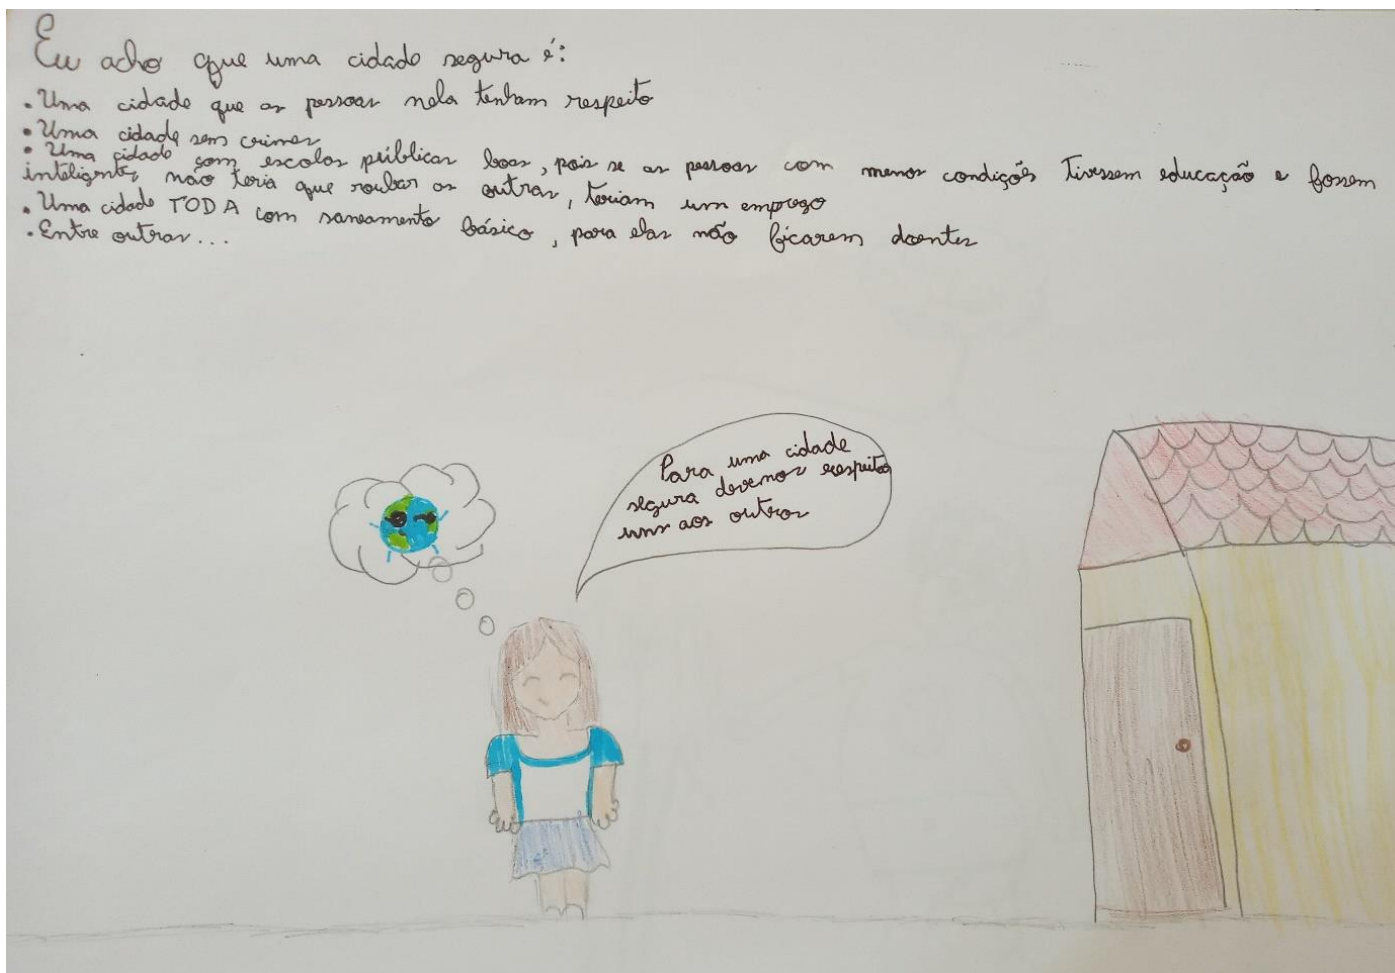 Eu acho que uma cidade segura é:
• Uma cidade que as pessoas nela tenham respeito
• Uma cidade sem crimes
• Uma cidade com escolas públicas boas, pois se as pessoas com menor condições tivessem educação e fossem
inteligentes não teria que roubar as outras, teriam um emprego
• Uma cidade TODA com saneamento básico, para elas não ficarem doentes
• Entre outras...
Para uma cidade
segura devemos respeito
uns aos outros